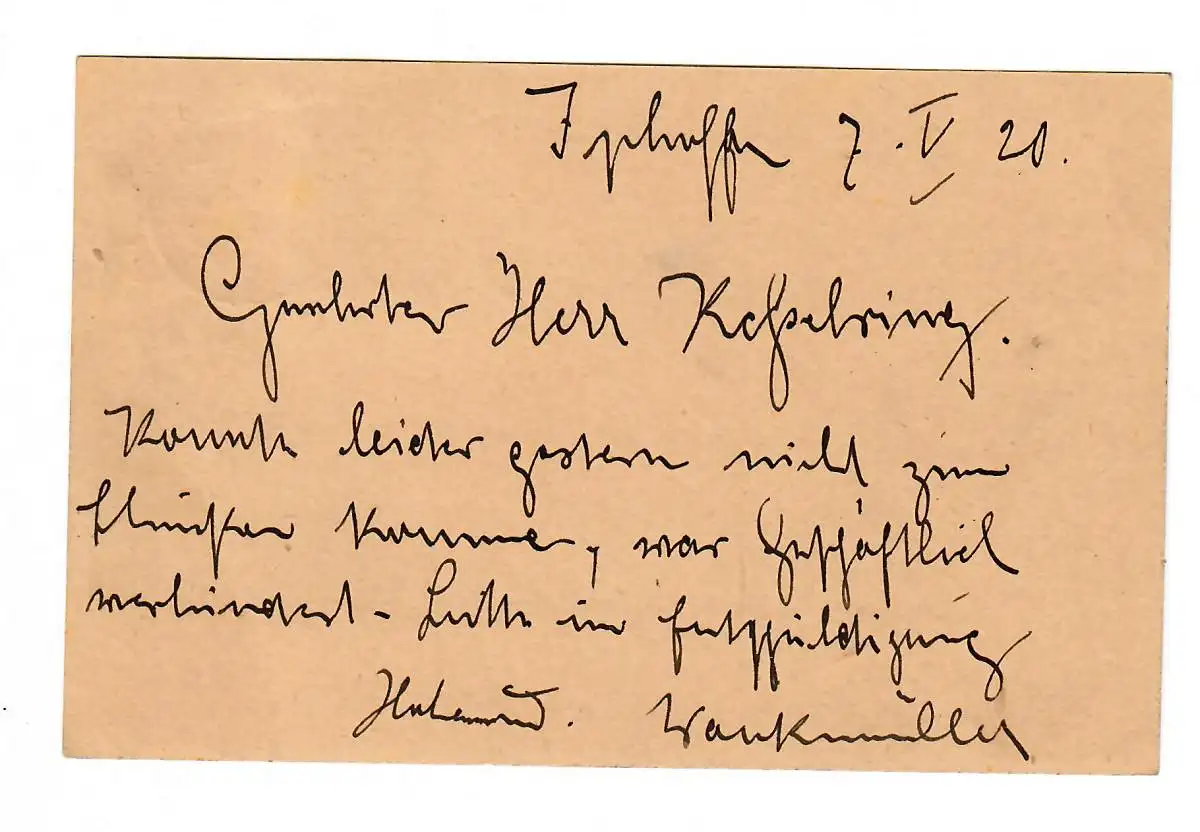 Iphofen 7. V 20.
Geehrter Herr Kesselring.
Konnte leider gestern nicht zum
kommen, war geschäftlich
verhindert - bitte um Entschuldigung
Wankmüller